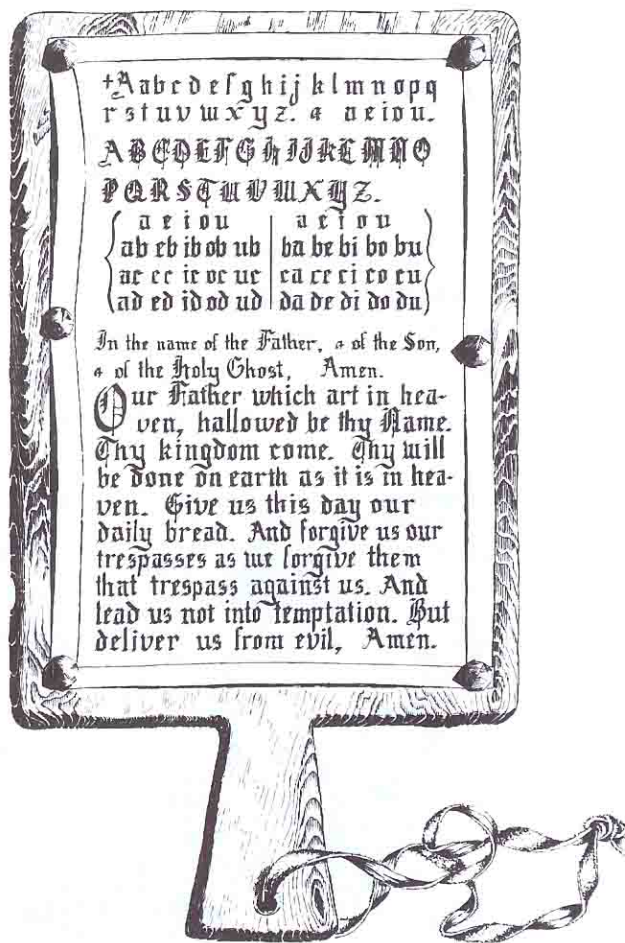 +Aabcdefghijklmnopq
rstuvwxyz. & aeiou.
ABCDEFGHIJKLMNO
PQRSTUVWXYZ.
a e i o u | a e i o u
ab eb ib ob ub | ba be bi bo bu
ac ec ic oc uc | ca ce ci co cu
ad ed id od ud | da de di do du
In the name of the Father, & of the Son,
& of the Holy Ghost, Amen.
Our Father which art in hea-
ven, hallowed be thy Name.
Thy kingdom come. Thy will
be done on earth as it is in hea-
ven. Give us this day our
daily bread. And forgive us our
trespasses as we forgive them
that trespass against us. And
lead us not into temptation. But
deliver us from evil, Amen.